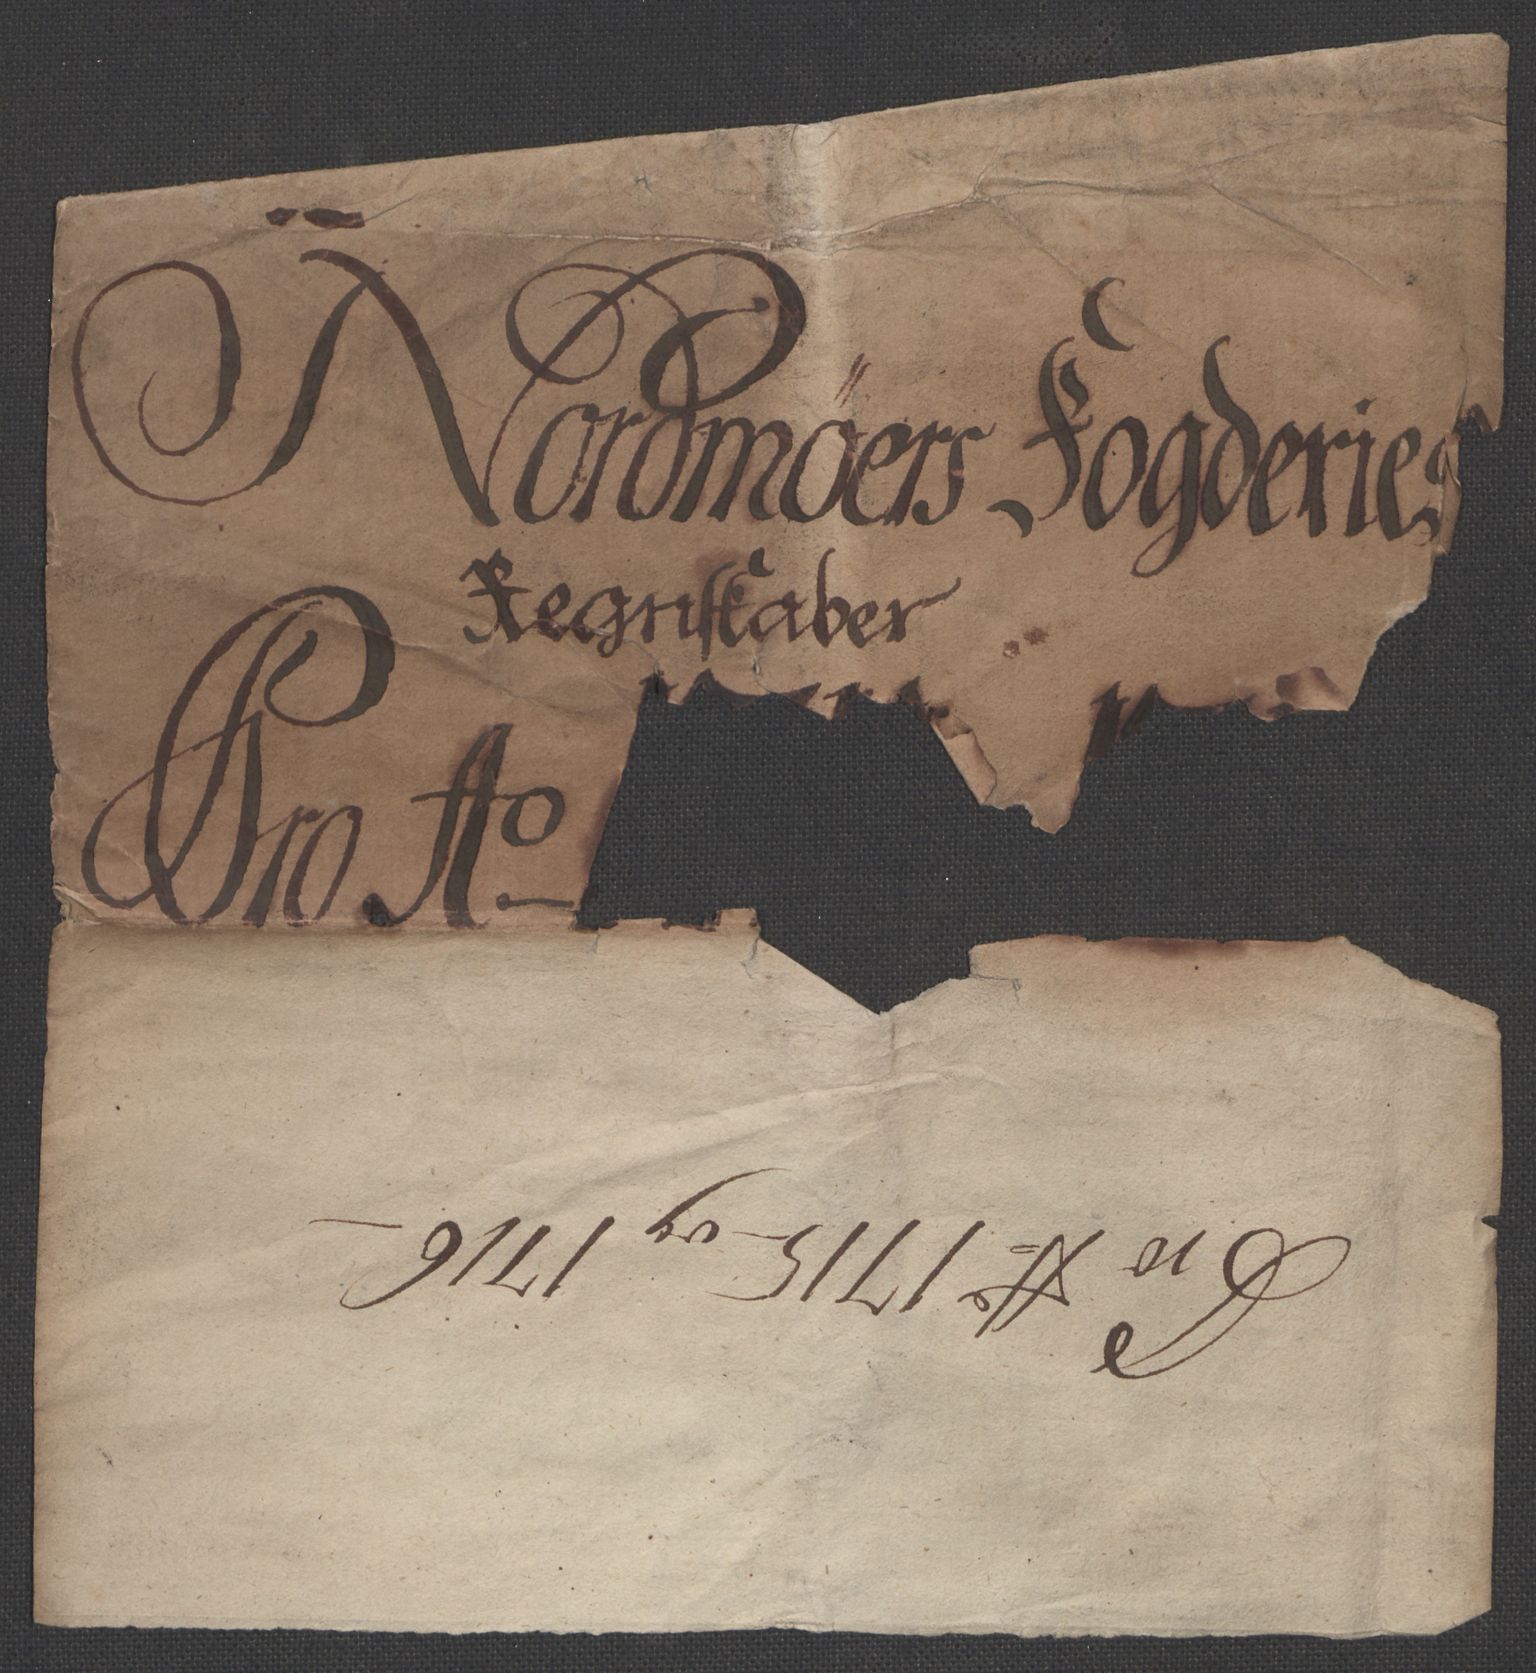 Nordmöers Fogderies
Regnskaber
Pro Ao
Pro Ao 1715 og 1716